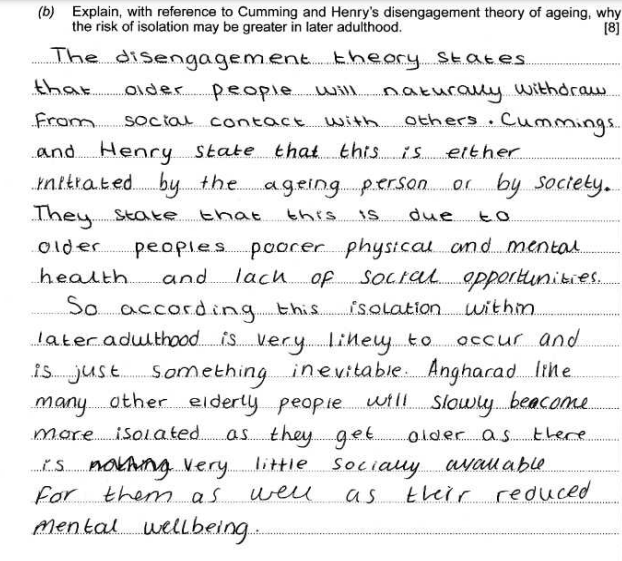 (b) Explain, with reference to Cumming and Henry's disengagement theory of ageing, why
the risk of isolation may be greater in later adulthood. [8]
The disengagement theory states
that older people will naturally withdraw
from social contact with others. Cummings
and Henry state that this is either
initiated by the ageing person or by society.
They state that this is due to
older peoples poorer physical and mental
health and lack of social opportunities.
So according this isolation within
later adulthood is very likely to occur and
is just something inevitable. Angharad like
many other elderly people will slowly beacome
more isolated as they get older as there
is nothing very little socially available
for them as well as their reduced
mental wellbeing.